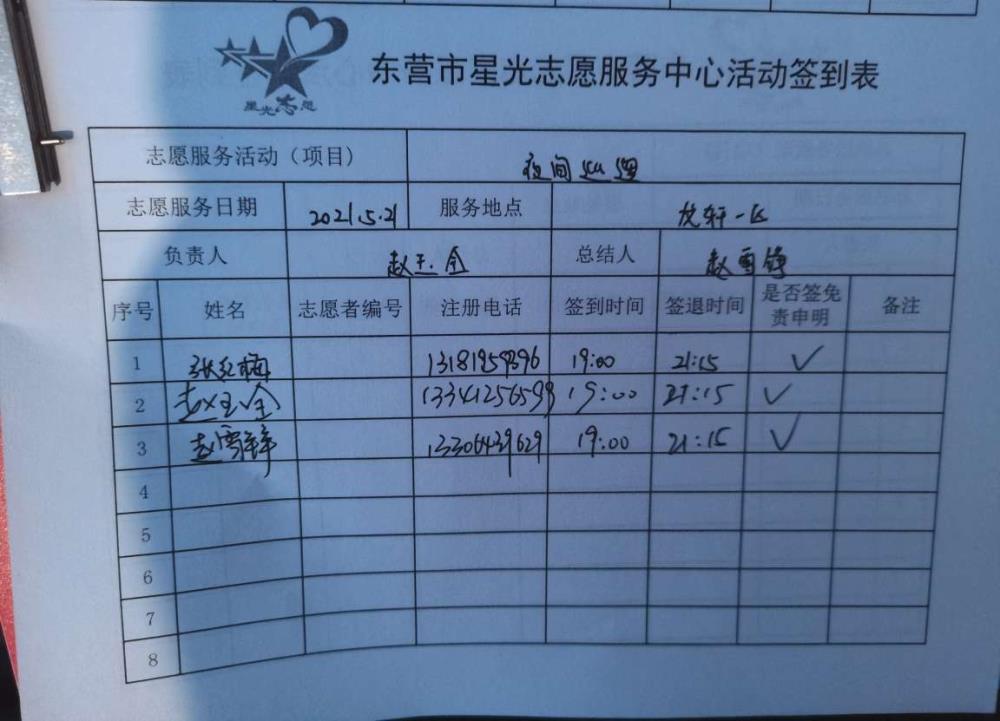 星光志愿
东营市星光志愿服务中心活动签到表
志愿服务活动（项目） 夜间巡逻
志愿服务日期 2021.5.21 服务地点 龙轩一区
负责人 赵玉全 总结人 赵雪锋
序号 姓名 志愿者编号 注册电话 签到时间 签退时间 是否签免责申明 备注
1 张红梅 19:00 21:15 ✓
2 赵玉全 13341256599 19:00 21:15 ✓
3 13306439629 19:00 21:15 ✓
4
5
6
7
8